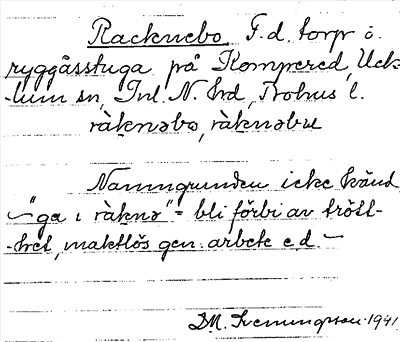 Racknebo, F.d. torp o.
ryggåsstuga på Kompered, Uck-
-lum sn, Inl. N. hrd, Bohus l.
ràknəbo, ràknəbu
Namngrunden icke känd
"ga ı ràknə" = bli förbi av trött-
-het, maktlös gen. arbete e.d. -
D.M. Svenungsson 1941